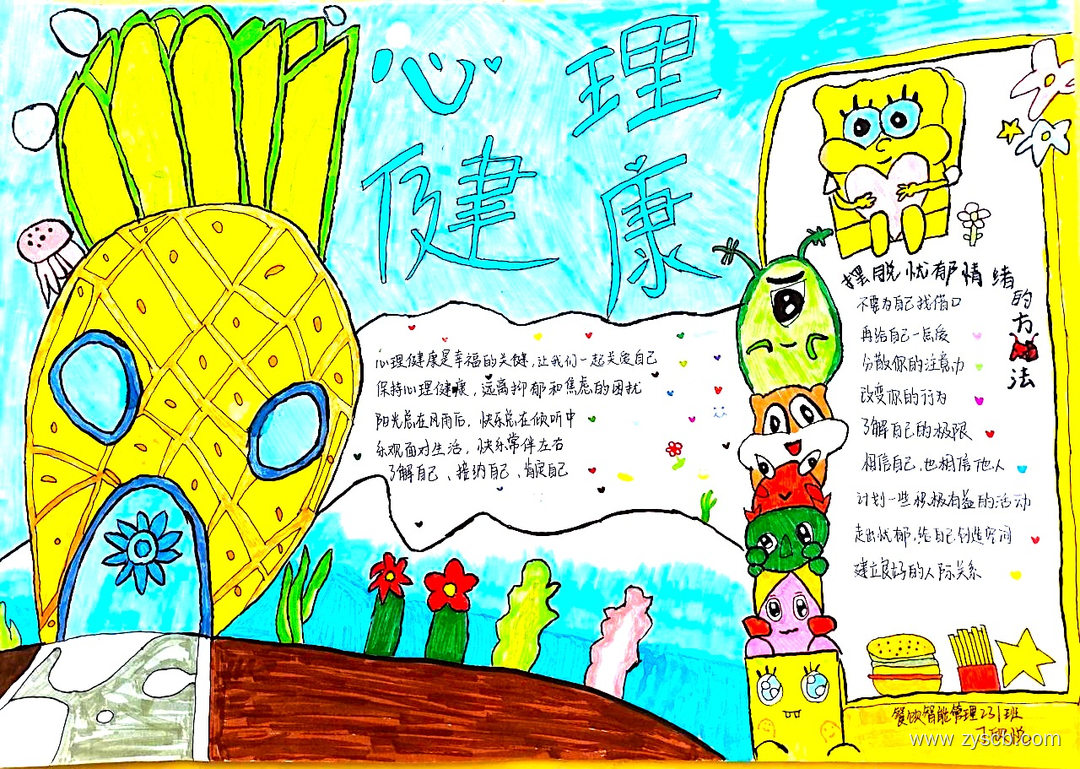 心理
健康
心理健康是幸福的关键,让我们一起关爱自己
保持心理健康,远离抑郁和焦虑的困扰
阳光总在风雨后,快乐总在倾听中
乐观面对生活,快乐常伴左右
了解自己、接纳自己、肯定自己
摆脱忧郁情绪的方法
不要为自己找借口
再给自己一点爱
分散你的注意力
改变你的行为
了解自己的极限
相信自己,也相信他人
计划一些积极有益的活动
走出忧郁,给自己创造空间
建立良好的人际关系
餐饮智能管理231班
www.zyscb.com